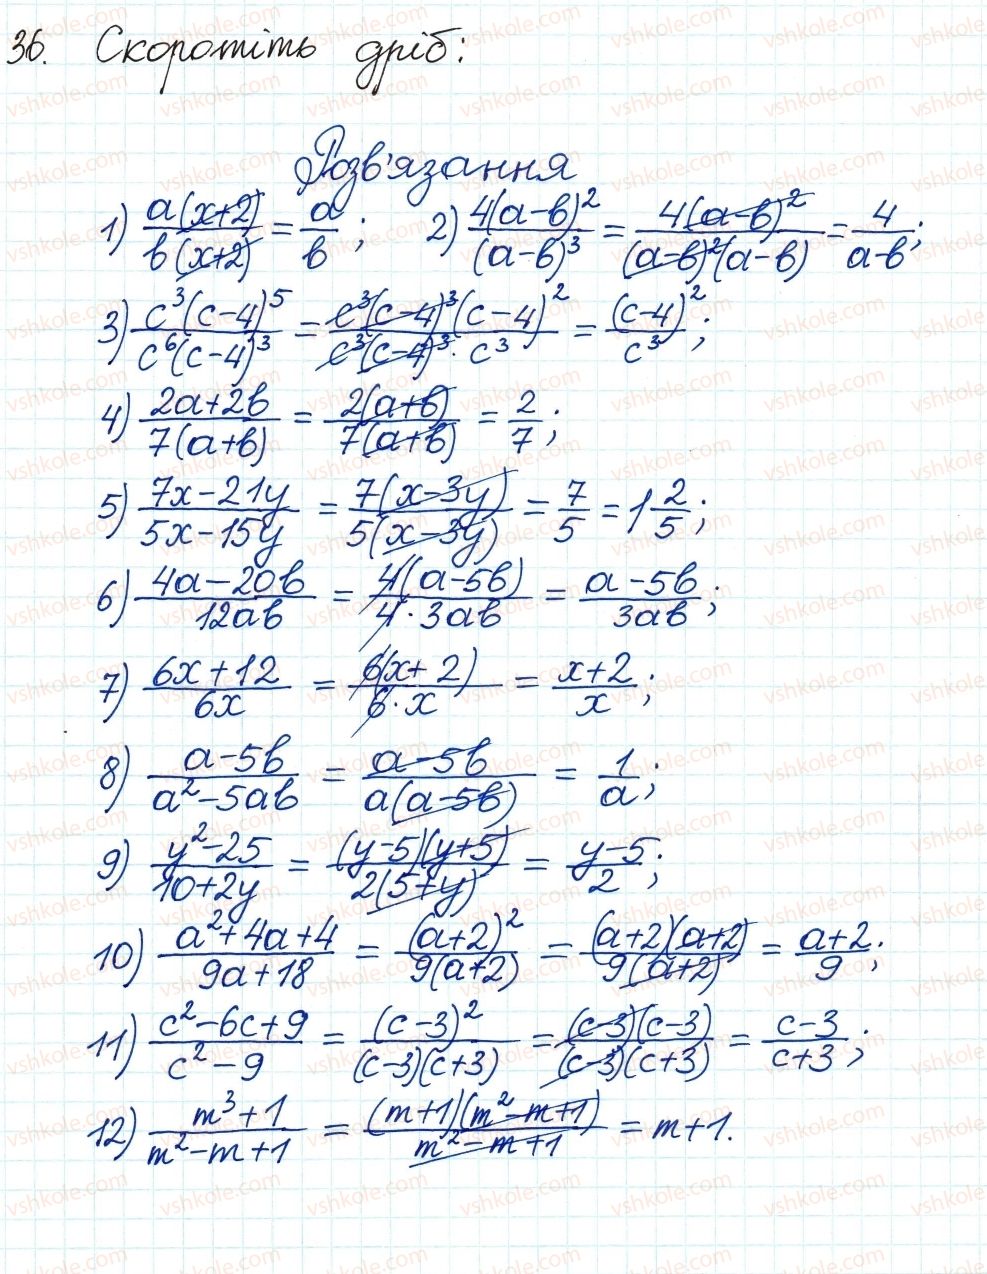 36. Скоротіть дріб:
Розв'язання
1) a(x+2)/b(x+2) = a/b; 2) 4(a-b)²/(a-b)³ = 4(a-b)²/(a-b)²(a-b) = 4/a-b;
3) c³(c-4)⁵/c⁶(c-4)³ = c³(c-4)³(c-4)²/c³(c-4)³·c³ = (c-4)²/c³;
4) 2a+2b/7(a+b) = 2(a+b)/7(a+b) = 2/7;
5) 7x-21y/5x-15y = 7(x-3y)/5(x-3y) = 7/5 = 1 2/5;
6) 4a-20b/12ab = 4(a-5b)/4·3ab = a-5b/3ab;
7) 6x+12/6x = 6(x+2)/6·x = x+2/x;
8) a-5b/a²-5ab = a-5b/a(a-5b) = 1/a;
9) y²-25/10+2y = (y-5)(y+5)/2(5+y) = y-5/2;
10) a²+4a+4/9a+18 = (a+2)²/9(a+2) = (a+2)(a+2)/9(a+2) = a+2/9;
11) c²-6c+9/c²-9 = (c-3)²/(c-3)(c+3) = (c-3)(c-3)/(c-3)(c+3) = c-3/c+3;
12) m³+1/m²-m+1 = (m+1)(m²-m+1)/m²-m+1 = m+1.